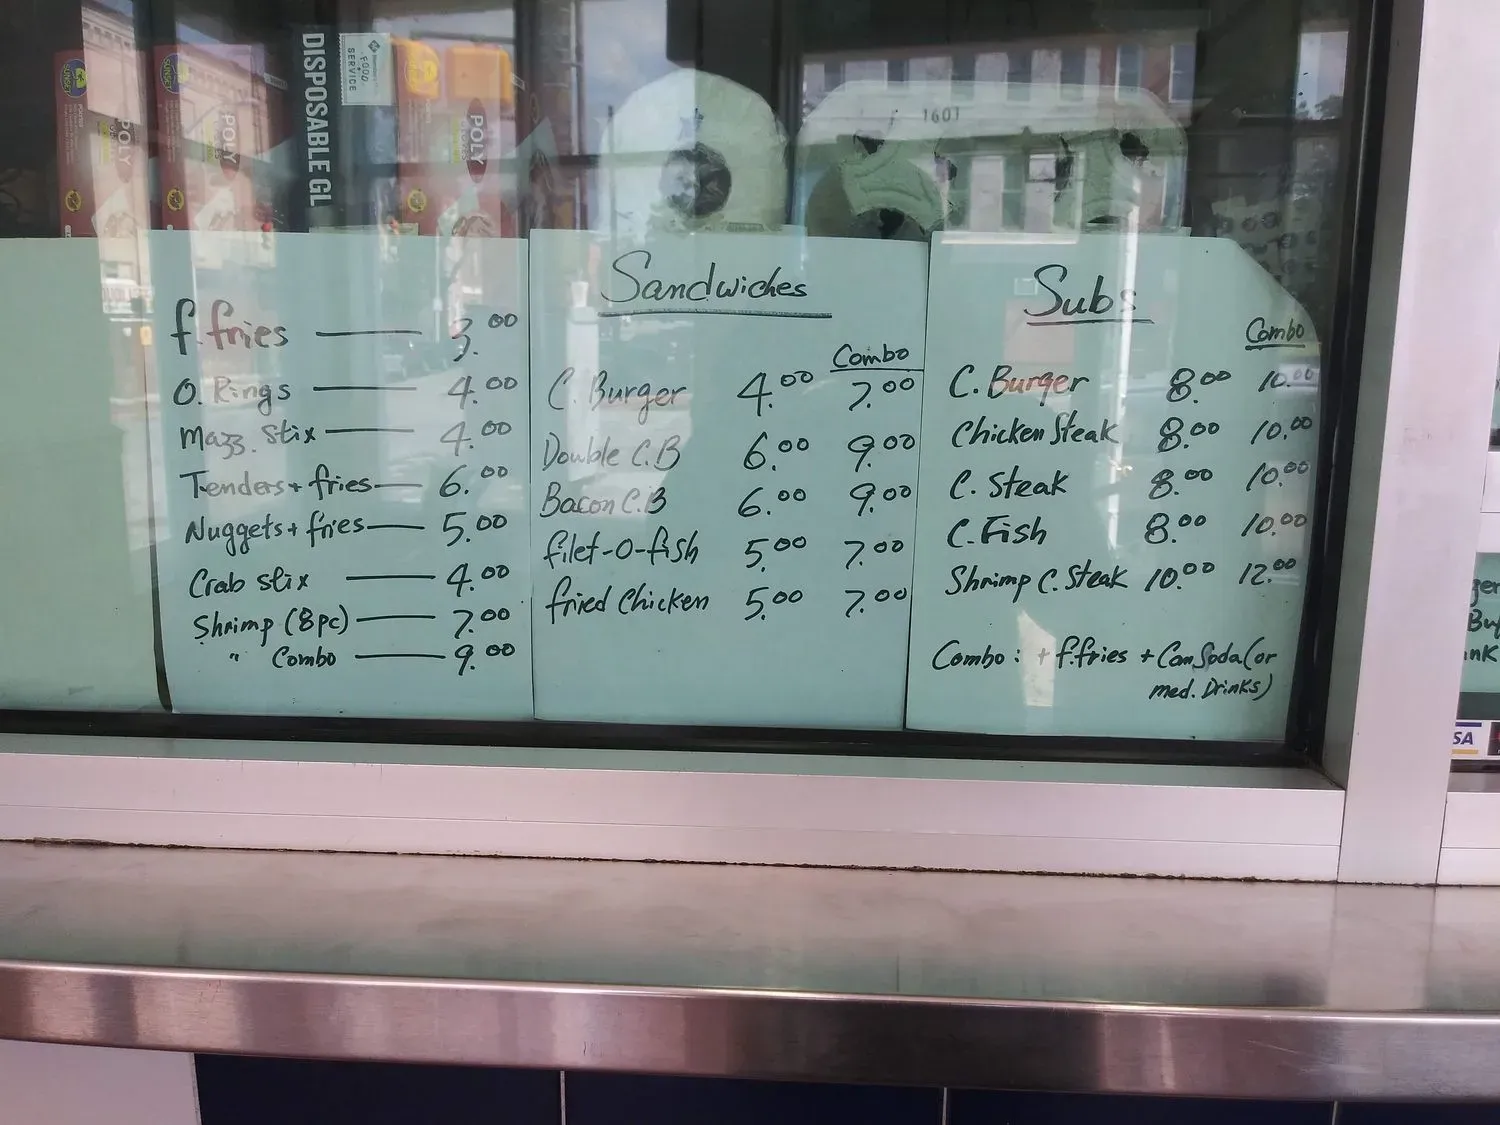 DISPOSABLE GL
FOOD
SERVICE
POLY
POLY
POLY
SUNSET
SUNSET
1601
f. fries 3.00
O. Rings 4.00
Mazz. stix 4.00
Tenders + fries 6.00
Nuggets + fries 5.00
Crab stix 4.00
Shrimp (8pc) 7.00
" Combo 9.00
Sandwiches
Combo
C. Burger 4.00 7.00
Double C.B 6.00 9.00
Bacon C.B 6.00 9.00
filet-O-fish 5.00 7.00
fried Chicken 5.00 7.00
Subs
Combo
C. Burger 8.00 10.00
Chicken Steak 8.00 10.00
C. Steak 8.00 10.00
C. Fish 8.00 10.00
Shrimp C. Steak 10.00 12.00
Combo: + f.fries + Can Soda (or
med. Drinks)
SA